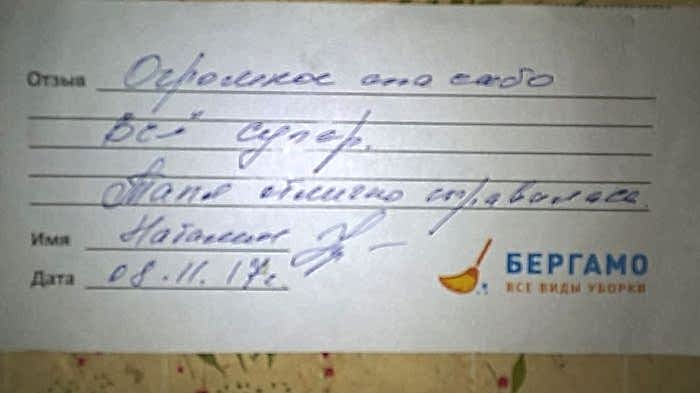 Отзыв Огромное спасибо
Всё супер.
Таня отлично справилась.
Имя Наталия
Дата 08.11.17г.
БЕРГАМО
ВСЕ ВИДЫ УБОРКИ